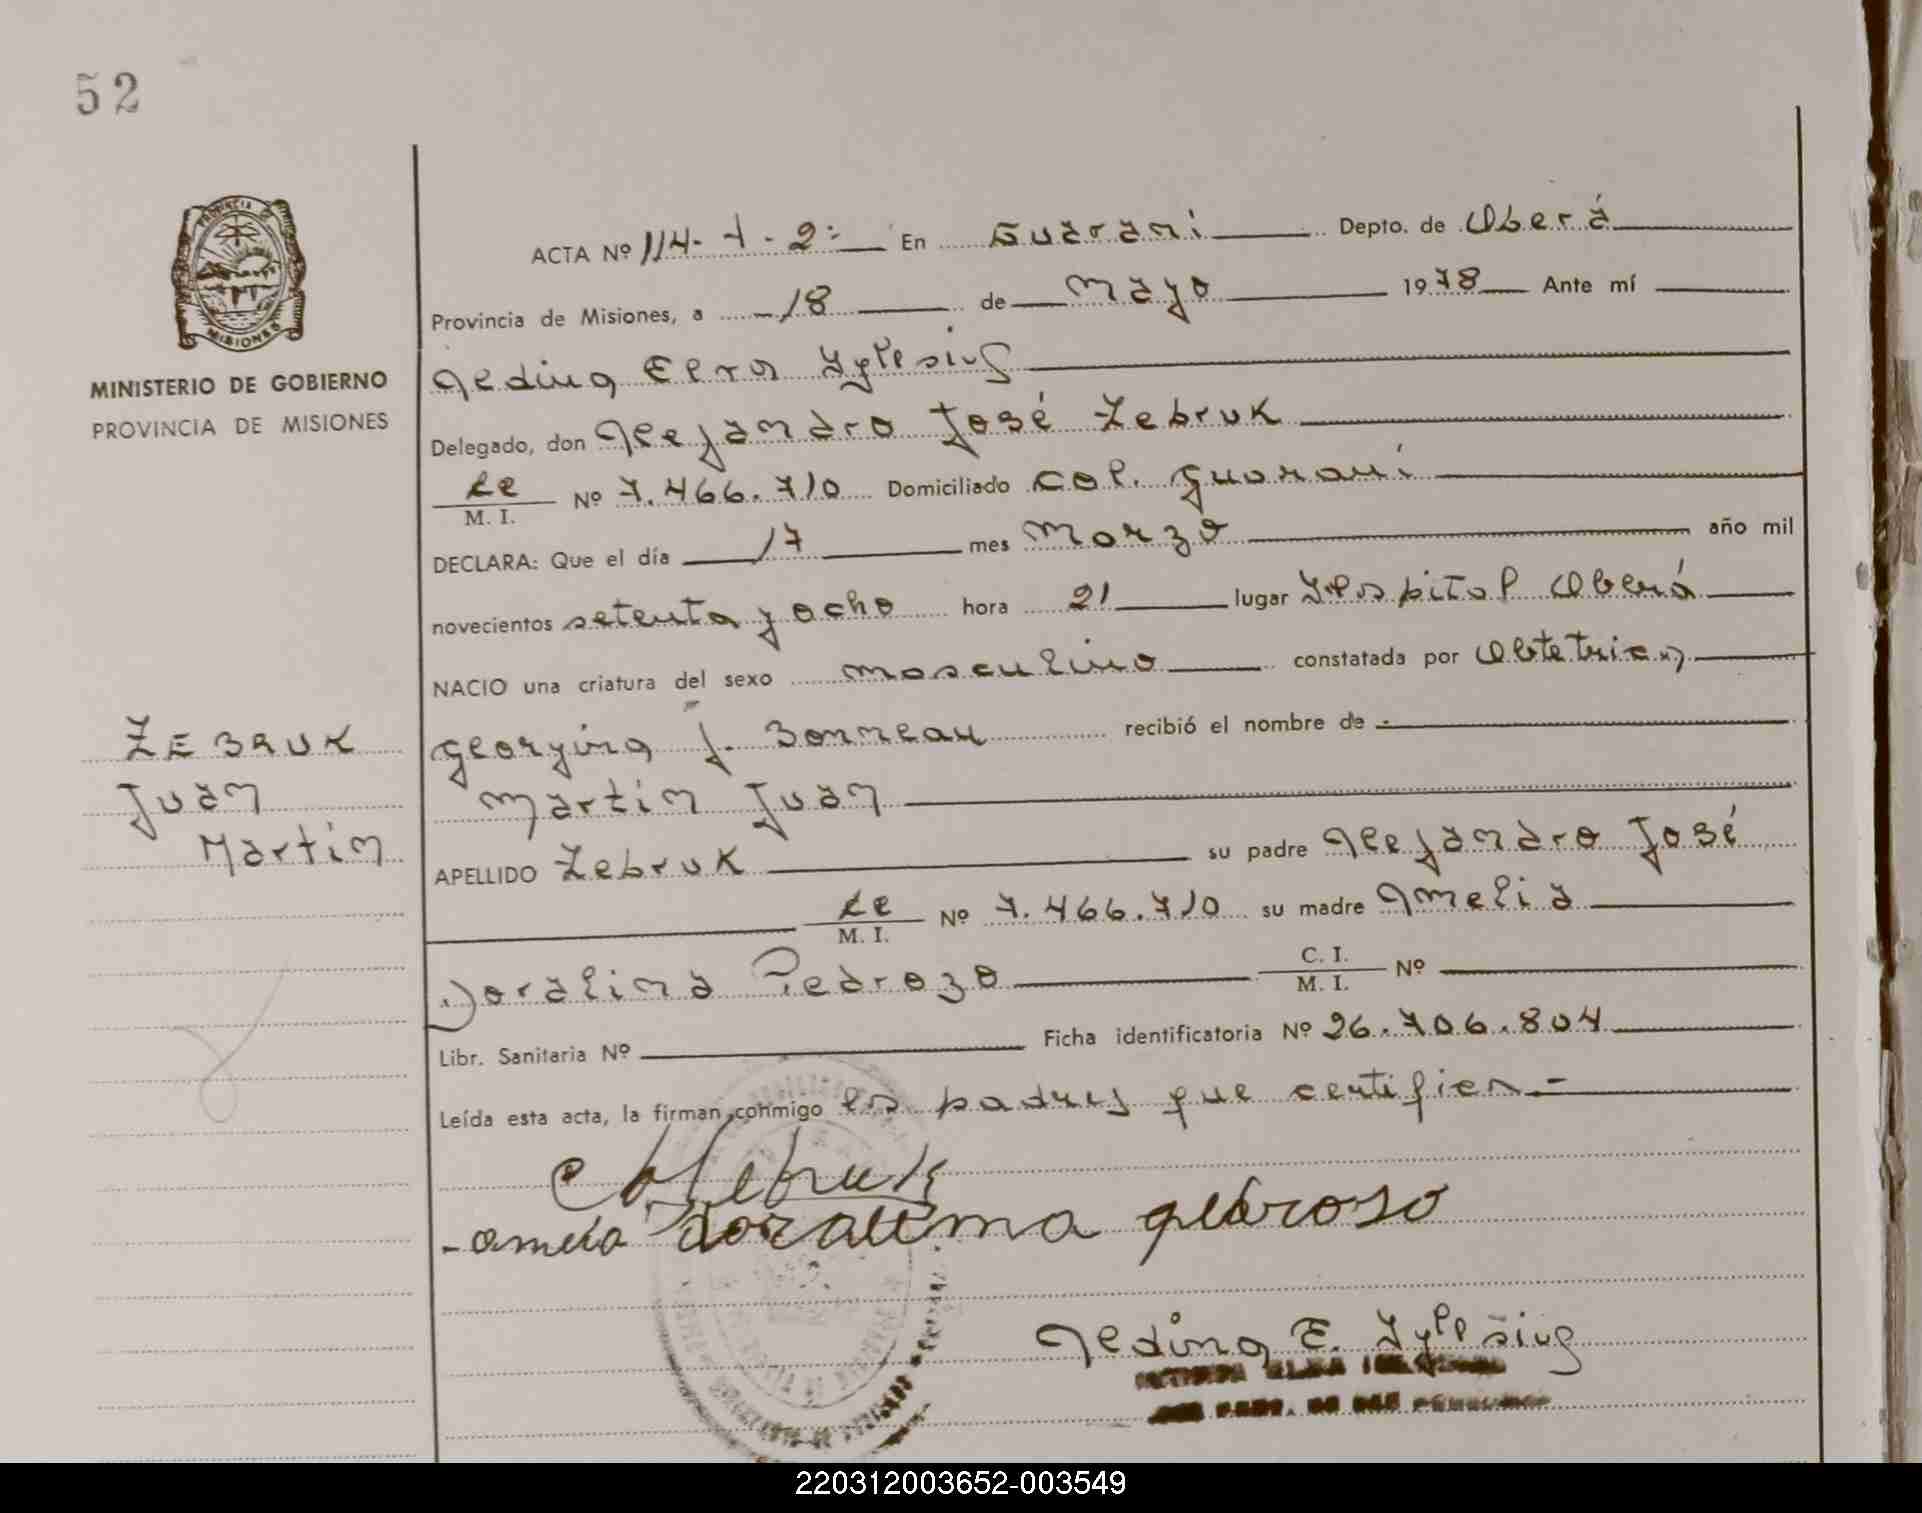 52
PROVINCIA DE
MISIONES
MINISTERIO DE GOBIERNO
PROVINCIA DE MISIONES
ACTA Nº 114-1-2: En Guaraní Depto. de Oberá
Provincia de Misiones, a 18 de Mayo 1978 Ante mí
Delegado, don Alejandro José Zebruk
Le M. I. Nº 7.466.710 Domiciliado Col. Guaraní
DECLARA: Que el día 17 mes Marzo año mil
novecientos setenta y ocho hora 21 lugar Hospital Oberá
NACIO una criatura del sexo masculino constatada por Obtetrica
Georgina J. Bonneau recibió el nombre de
Martín Juan
ZEBRUK
Juan
Martín
APELLIDO Zebruk su padre Alejandro José
Le M. I. Nº 7.466.710 su madre Amelia
Doralina Pedrozo C. I. M. I. Nº
Libr. Sanitaria Nº Ficha identificatoria Nº 26.706.804
Leída esta acta, la firman conmigo los padres que certifico.=
Zebruk
-amelia doralina pedroso
E.
220312003652-003549